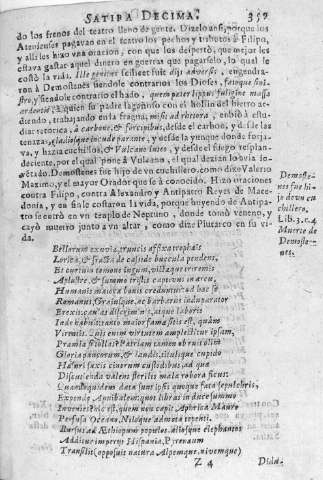 SATIRA DECIMA. 359
do los frenos del teatro lleno de gente. Dizelo assi, porque los
Atenienses pagavan en el teatro los pechos y tributos a Filipo,
y alli les hizo vna oracion, con que los despertò, que mejor les
estava gastar aquel dinero en guerras que pagarselo, lo qual le
costò la vida. Ille genitus scilicet fuit dijs adversis, engendra-
ron à Demostenes siendole contrarios los Dioses, fatoque sini-
stro, y siendole contrario el hado, quem pater lippus fuligine massa
ardentis, à quien su padre lagañoso con el hollin del hierro ar-
diendo, trabajando en la fragua, misit ad rhetora, enbiò à estu-
diar retorica, à carbone, & forcipibus, desde el carbon, y desde las
tenazas, gladiosque incude parante, y desde la yunque donde forja-
va, y hazia cuchillos, & Vulcano luteo, y desde el fuego resplan-
deciente, por el qual pone à Vulcano, el qual dezian lo avia in-
ventado. Demostenes fue hijo de vn cuchillero, como dize Valerio
Maximo, y el mayor Orador que se à conocido. Hizo oraciones
contra Filipo, contra Alexandro y Antipatro Reyes de Mace-
donia, y en fin le costaron la vida, porque huyendo de Antipa-
tro se entrò en vn templo de Neptuno, donde tomò veneno, y
cayò muerto junto a vn altar, como dize Plutarco en su vi-
da.
Demoste-
nes fue hi-
jo de vn cu
chillero.
Lib. 3. c. 4
Muerte de
Demoste-
nes.
Bellorum exuviæ, truncis affixa trophæis
Lorica, & fracta de casside buccula pendens,
Et curtum temone iugum, victæque triremis
Aplustre, & summo tristis captivus in arcu,
Humanis maiora bonis creduntur ad hoc se
Romanus, Graiusque, ac barbarus induperator
Erexit, causas discriminis, atque laboris
Inde habuit: tanto maior famæ sitis est, quàm
Virtutis. Quis enim virtutem amplectitur ipsam,
Præmia si tollas? Patriam tamen obruit olim
Gloria paucorum, & laudis, titulique cupido
Hæsuri saxis cinerum custodibus, ad quæ
Discutienda valent sterilis mala robora ficus:
Quandoquidem data sunt ipsis quoque fata sepulchris,
Expende Annibalem: quot libras in duce summo
Invenies? hic est, quem non capit Aphrica Mauro
Perfusa Oceano, Niloque admota tepenti.
Rursus ad Æthiopum populos, aliosque elephantos
Additur imperijs Hispania, Pyrenæum
Transilit (opposuit natura Alpemque, nivemque)
Z 4 Didu-